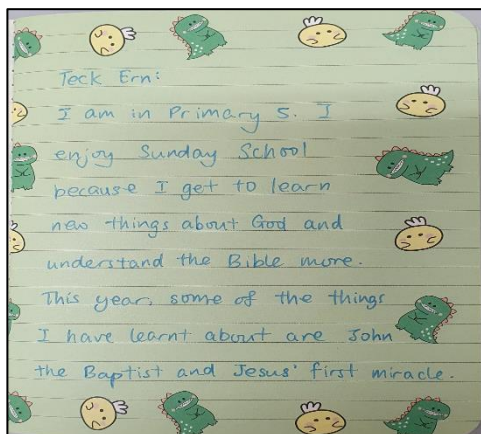 Teck Ern:
I am in Primary 5. I
enjoy Sunday School
because I get to learn
new things about God and
understand the Bible more.
This year, some of the things
I have learnt about are John
the Baptist and Jesus' first miracle.